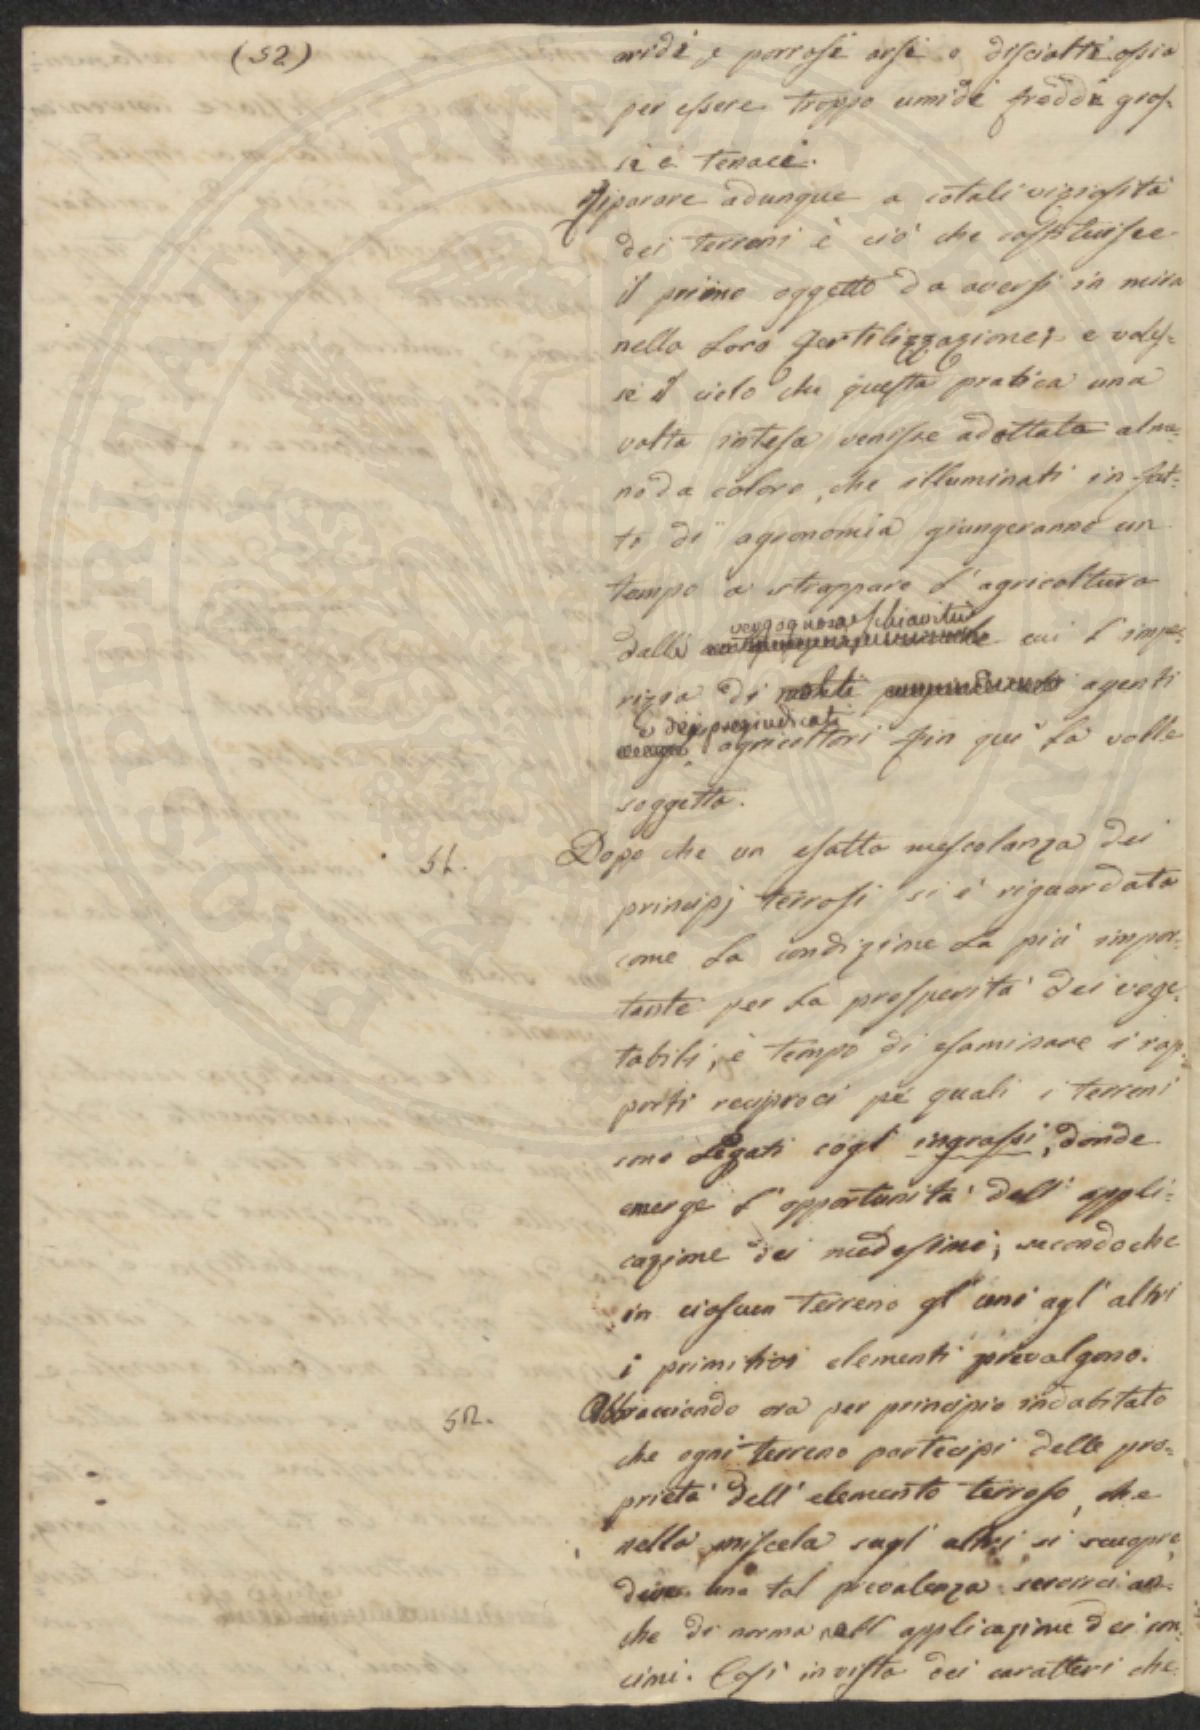 (52)
aridi e porrosi arsi o disciolti ossia
per essere troppo umidi freddi gros-
si e tenaci.
Riparare adunque a cotali viziosità
dei terreni è ciò che costituisce
il primo oggetto da aversi in mira
nella loro fertilizzazione; e voles-
se il cielo che questa pratica una
volta intesa venisse adottata alme-
no da coloro, che illuminati in fat-
to di agronomia giungeranno un
tempo a strappare l'agricoltura
vergognosa schiavitù
dalla cui l'impe-
rizia di molti agenti
e dei pregiudicati
agricoltori fin qui la volle
soggetta.
51. Dopo che un esatta mescolanza dei
principj terrosi si è riguardata
come la condizione la più impor-
tante per la prosperità dei vege-
tabili, è tempo di esaminare i rap-
porti reciproci pe' quali i terreni
sono legati cogl' ingrassi, donde
emerge l'opportunità dell' appli-
cazione dei medesimi, secondoche
in ciascun terreno gl' uni agl' altri
i primitivi elementi prevalgono.
52. Abbracciando ora per principio indubitato
che ogni terreno partecipi delle pro-
prietà dell' elemento terroso, che
nella miscela sugl' altri si scuopre,
deve una tal prevalenza servirci an-
che di norma nell' applicazione dei con-
cimi. Così in vista dei caratteri che